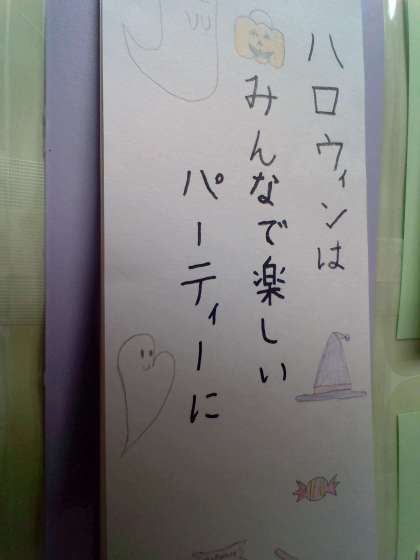 ハロウィンは
みんなで楽しい
パーティーに